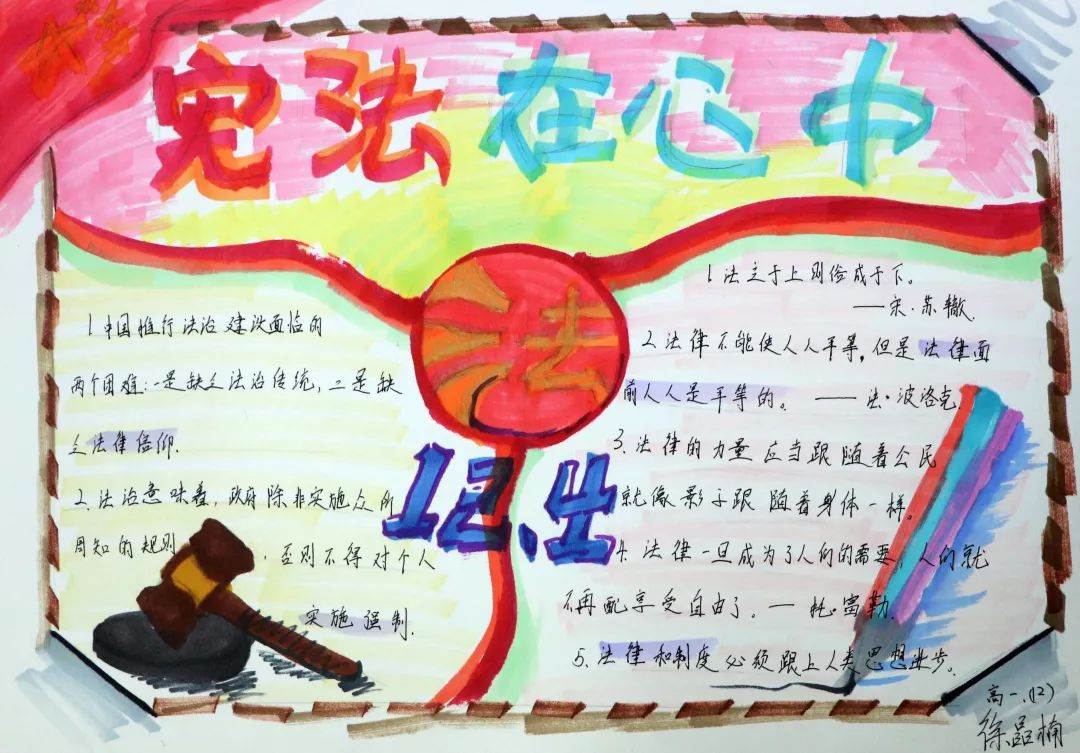 宪法在心中
法
12.4
1.中国推行法治建设面临的
两个困难:一是缺乏法治传统,二是缺
乏法律信仰.
2.法治意味着,政府除非实施众所
周知的规则,否则不得对个人
实施强制.
1.法立于上则俗成于下。
——宋·苏辙.
2.法律不能使人人平等,但是法律面
前人人是平等的。——法·波洛克.
3.法律的力量应当跟随着公民
就像影子跟随着身体一样。
4.法律一旦成为了人们的需要,人们就
不再配享受自由了。—托·富勒.
5.法律和制度必须跟上人类思想进步。
高一.(12)
徐品楠